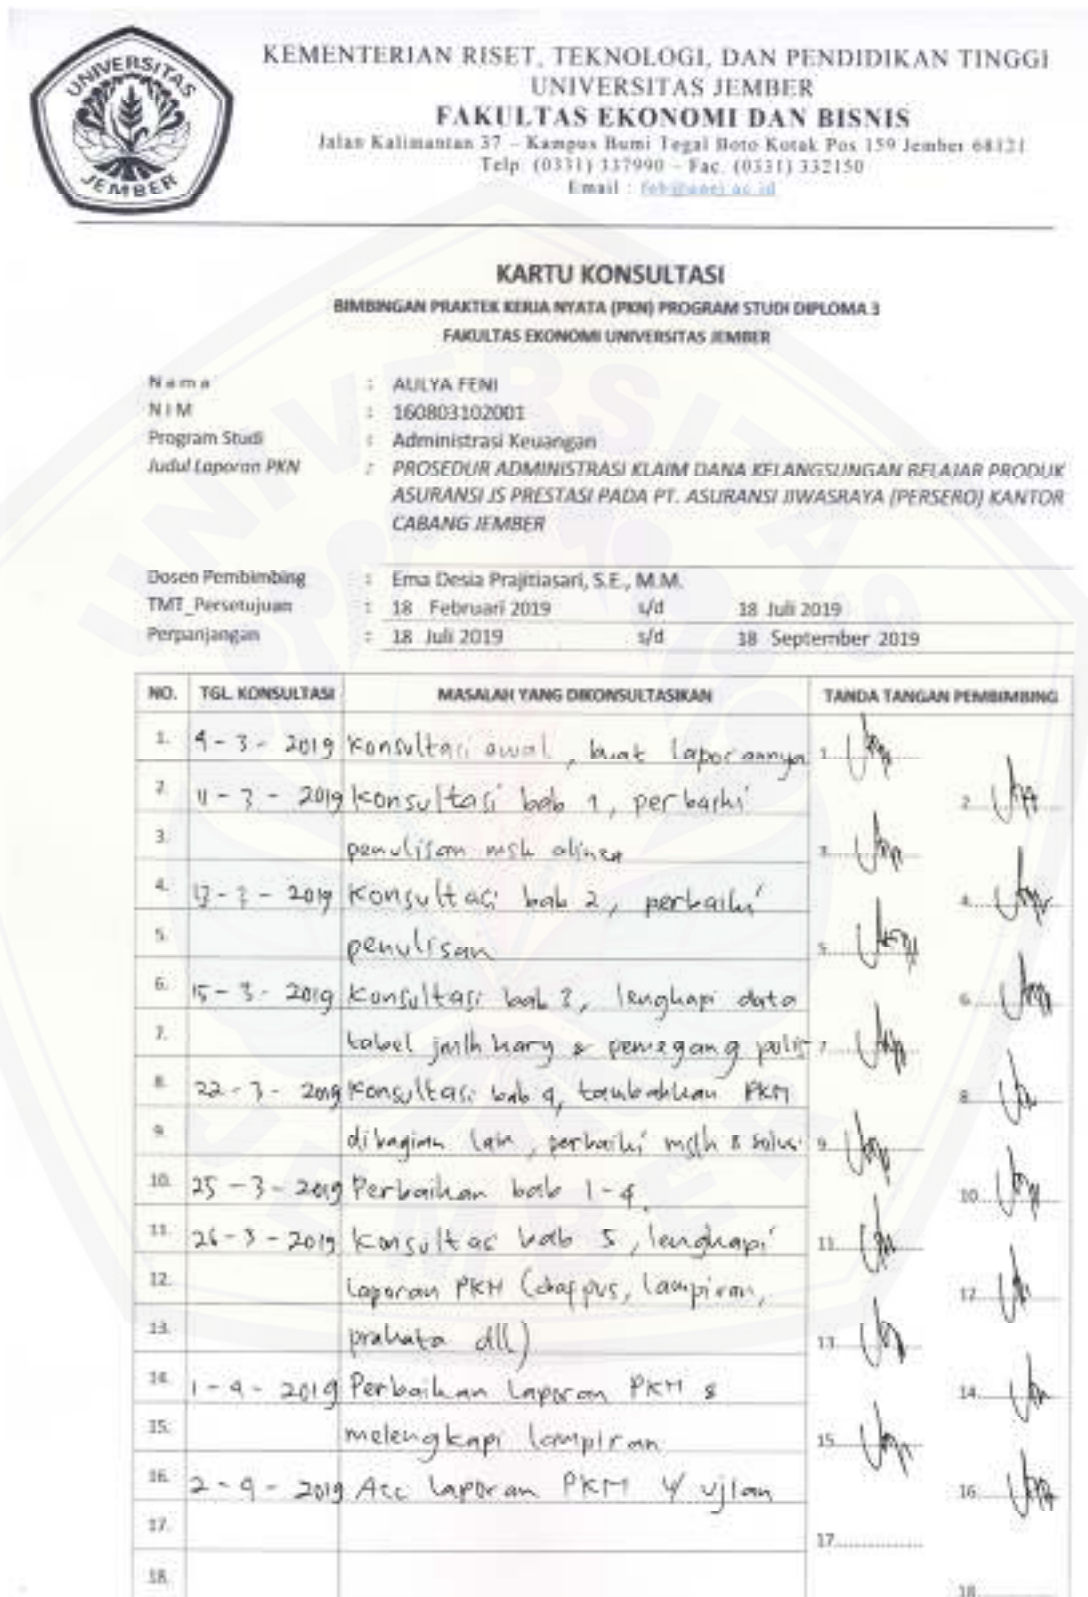 UNIVERSITAS
JEMBER
KEMENTERIAN RISET, TEKNOLOGI, DAN PENDIDIKAN TINGGI
UNIVERSITAS JEMBER
FAKULTAS EKONOMI DAN BISNIS
Jalan Kalimantan 37 – Kampus Bumi Tegal Boto Kotak Pos 159 Jember 68121
Telp. (0331) 337990 – Fac. (0331) 332150
Email : feb@unej.ac.id
KARTU KONSULTASI
BIMBINGAN PRAKTEK KERJA NYATA (PKN) PROGRAM STUDI DIPLOMA 3
FAKULTAS EKONOMI UNIVERSITAS JEMBER
Nama : AULYA FENI
NIM : 160803102001
Program Studi : Administrasi Keuangan
Judul Laporan PKN : PROSEDUR ADMINISTRASI KLAIM DANA KELANGSUNGAN BELAJAR PRODUK
ASURANSI JS PRESTASI PADA PT. ASURANSI JIWASRAYA (PERSERO) KANTOR
CABANG JEMBER
Dosen Pembimbing : Ema Desia Prajitiasari, S.E., M.M.
TMT_Persetujuan : 18 Februari 2019 s/d 18 Juli 2019
Perpanjangan : 18 Juli 2019 s/d 18 September 2019
NO. TGL. KONSULTASI MASALAH YANG DIKONSULTASIKAN TANDA TANGAN PEMBIMBING
1. 4-3-2019 Konsultasi awal, buat laporannya 1.
2. 11-3-2019 Konsultasi bab 1, perbaiki 2.
3. penulisan msh alinea 3.
4. 13-3-2019 Konsultasi bab 2, perbaiki 4.
5. penulisan 5.
6. 15-3-2019 Konsultasi bab 3, lengkapi data 6.
7. tabel jmlh kary & pemegang polis 7.
8. 22-3-2019 Konsultasi bab 4, tambahkan PKM 8.
9. dibagian lain, perbaiki mslh & solusi 9.
10. 25-3-2019 Perbaikan bab 1-4. 10.
11. 26-3-2019 Konsultas bab 5, lengkapi 11.
12. Laporan PKM (dafpus, lampiran, 12.
13. prakata dll) 13.
14. 1-4-2019 Perbaikan Laporan PKM & 14.
15. melengkapi lampiran 15.
16. 2-4-2019 Acc Laporan PKM u/ ujian 16.
17. 17.
18. 18.